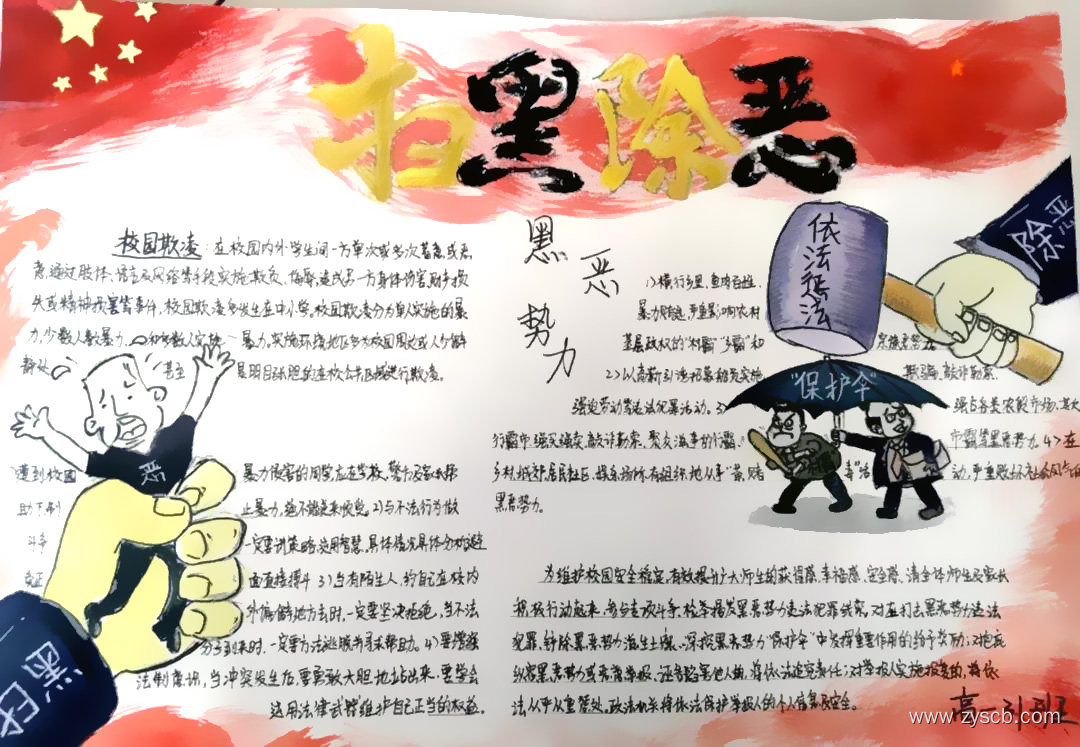 扫黑除恶
校园欺凌：在校园内外学生间一方单次或多次蓄意或恶
意通过肢体、语言及网络等手段实施欺负、侮辱,造成另一方身体伤害、财产损
失或精神损害等事件。校园欺凌多发生在中小学,校园欺凌分为单人实施的暴
力,少数人暴力,和多数人实施 暴力。实施环境地区多为校园周边或人少僻
静处 甚至 是明目张胆的在校公共区域进行欺凌。
恶
遭到校园 暴力侵害的同学应在学校、警方及家长帮
助下制 止暴力,绝不能走来
斗争 一定要讲策略,运用智慧,具体情况具体分析避
免正 面直接撞斗 3)当有陌生人 约自己在校内
外偏僻地方去时,一定要坚决拒绝,当不法
分子到来时,一定要方法逃脱并寻求帮助。4)要增强
法制意识,当冲突发生后,要勇敢大胆地站出来,要学会
运用法律武器维护自己正当的权益。
黑恶
势力
1)横行乡里,鱼肉百姓,
暴力
基层政权的“村霸”“乡霸”和 宗族恶势力
2)以高薪引诱招募 实施 欺骗、敲诈勒索、
强迫劳动等违法犯罪活动。3) 强占各类农贸市场,其大
行霸市、强买强卖、敲诈勒索、聚众滋事的行霸、 市霸等黑恶势力。4>在
乡村、城郊、居民社区、娱乐场所有组织地从事“黄、赌 毒”活 动,严重败坏社会风气的
黑恶势力。
依法惩治
除恶
“保护伞”
为维护校园安全稳定,有效提升广大师生的获得感、幸福感、安全感,请全体师生及家长
积极行动起来,参与专项斗争,检举揭发黑恶势力违法犯罪线索,对在打击黑恶势力违法
犯罪、铲除黑恶势力滋生土壤、深挖黑恶势力“保护伞”中发挥重要作用的给予奖励;对包庇
纵容黑恶势力或恶意举报、诬告陷害他人的,将依法追究责任;对举报人实施报复的,将依
法从严从重惩处。政法机关将依法保护举报人的个人信息及安全。
www.zyscb.com